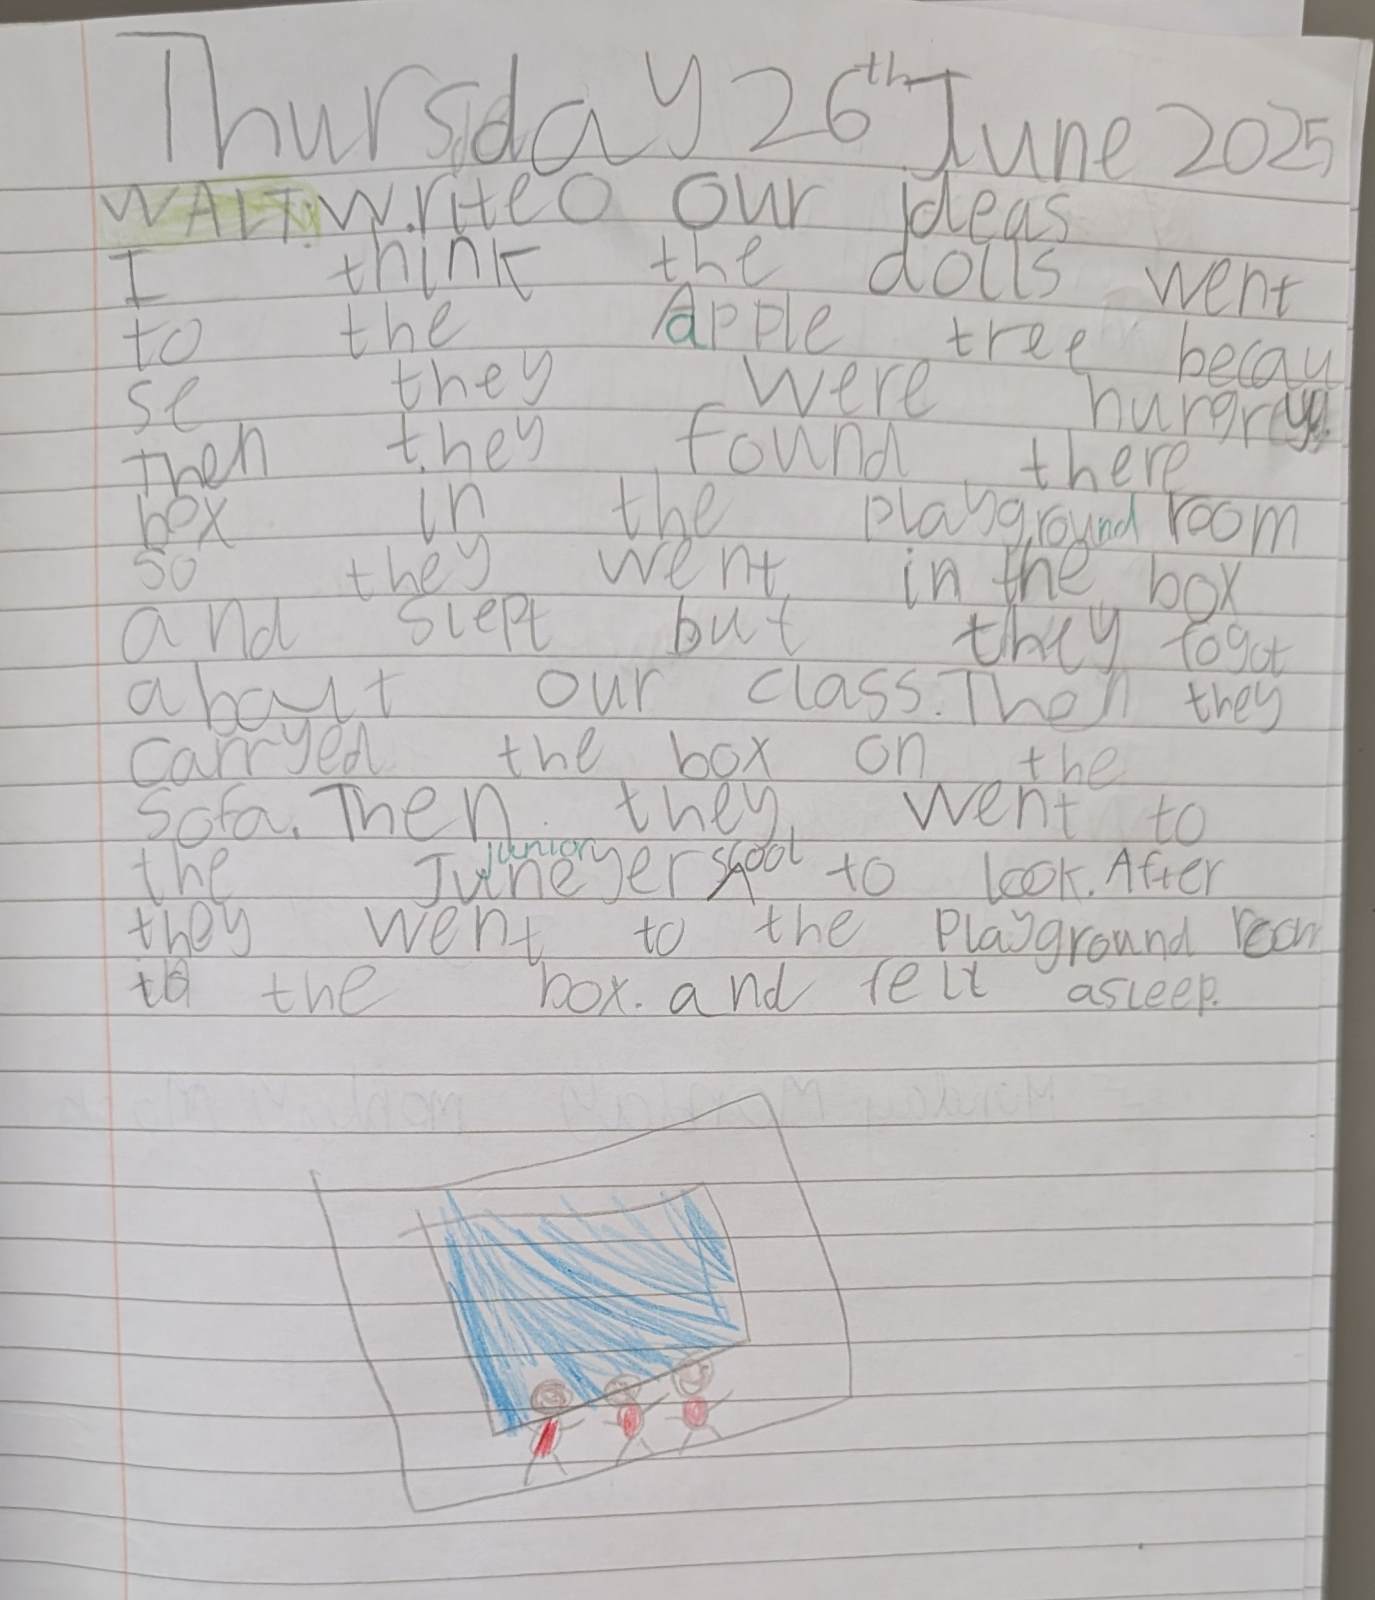 Thursday 26th June 2025
WALT: Write our ideas
I think the dolls went
to the Apple tree becau
se they were hungry.
Then they found there
box in the playground room
so they went in the box
and slept but they fogot
abaut our class. Then they
carryed the box on the
sofa. Then they went to
junior
the Juneyer shool to look. After
they went to the Playground room
to the box. and fell asleep.